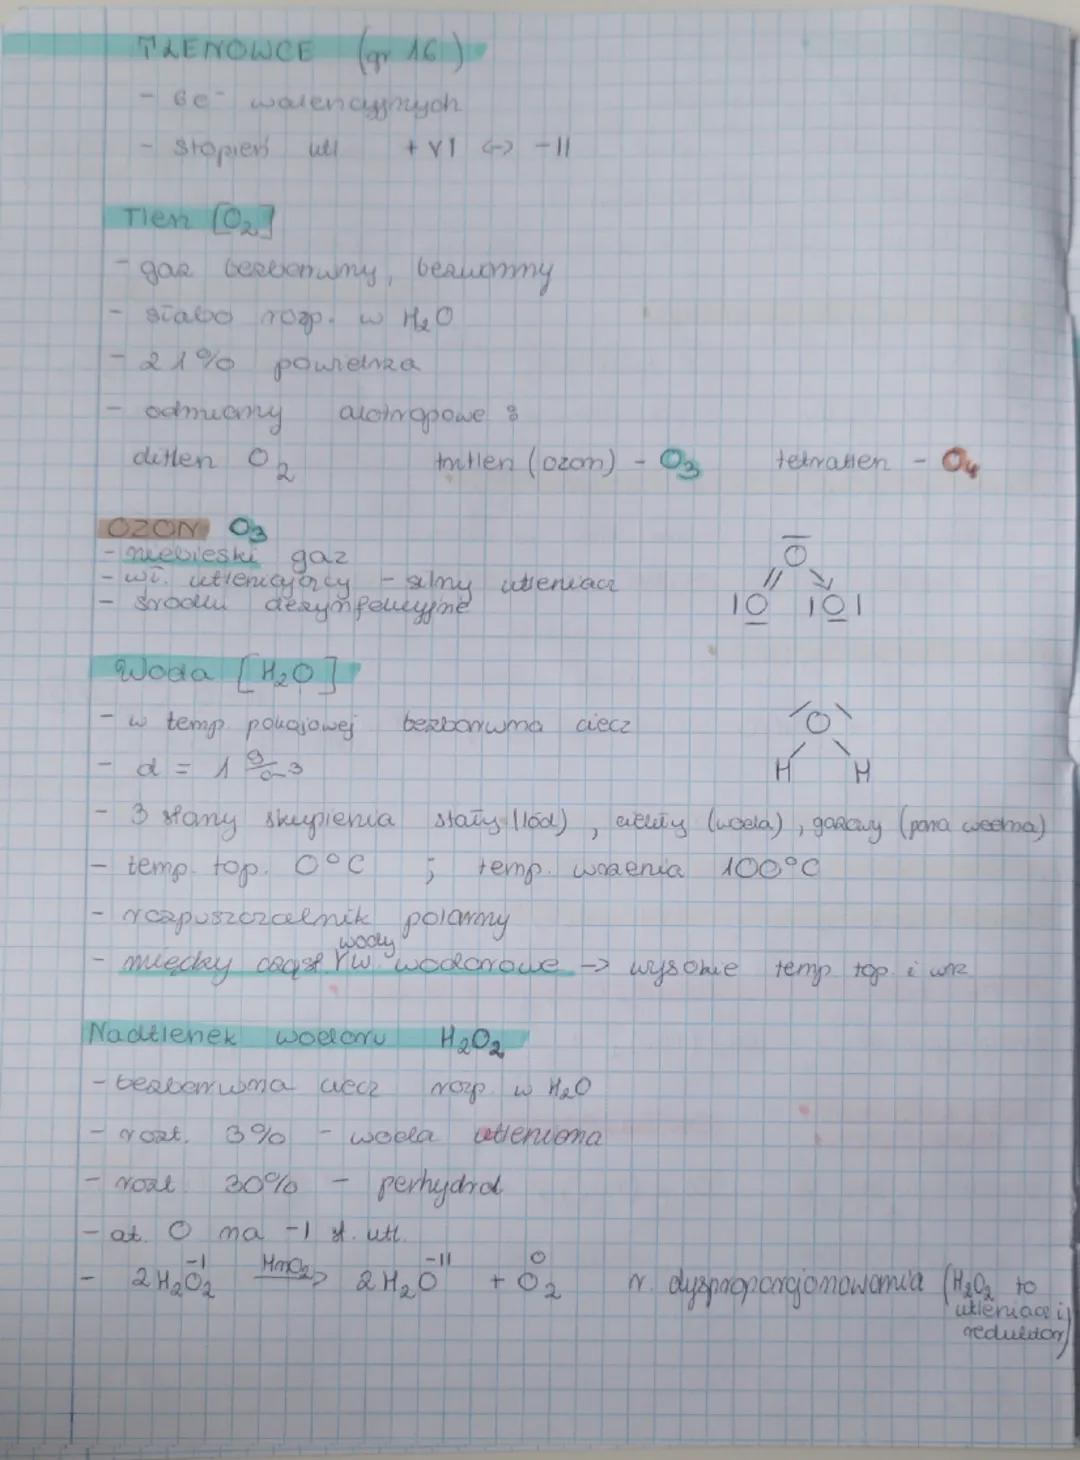 TLENOWCE (gr 16)
- 6e⁻ walencyjnych
- stopień utl +VI <-> -II
Tlen [O₂]
- gaz bezbarwny, bezwonny
- słabo rozp. w H₂O
- 21% powietrza
- odmiany alotropowe :
ditlen O₂ tritlen (ozon) - O₃ tetratlen - O₄
OZON O₃
- niebieski gaz
- wł. utleniający - silny utleniacz
- środki dezynfekcyjne
O
|O |O|
Woda [H₂O]
- w temp pokojowej bezbarwna ciecz
O
H H
- d = 1 g/cm³
- 3 stany skupienia stały (lód), ciekły (woda), gazowy (para wodna)
- temp. top. 0°C ; temp. wrzenia 100°C
- rozpuszczalnik polarny
- między cząst. wody w. wodorowe -> wysokie temp top. i wrz
Nadtlenek wodoru H₂O₂
- bezbarwna ciecz rozp. w H₂O
- rozt. 3% - woda utleniona
- rozt. 30% - perhydrol
- at. O ma -I st. utl.
-I HmO₂ -II O
- 2H₂O₂ -> 2H₂O + O₂ r. dysproporcjonowania (H₂O₂ to
utleniacz i
reduktor)